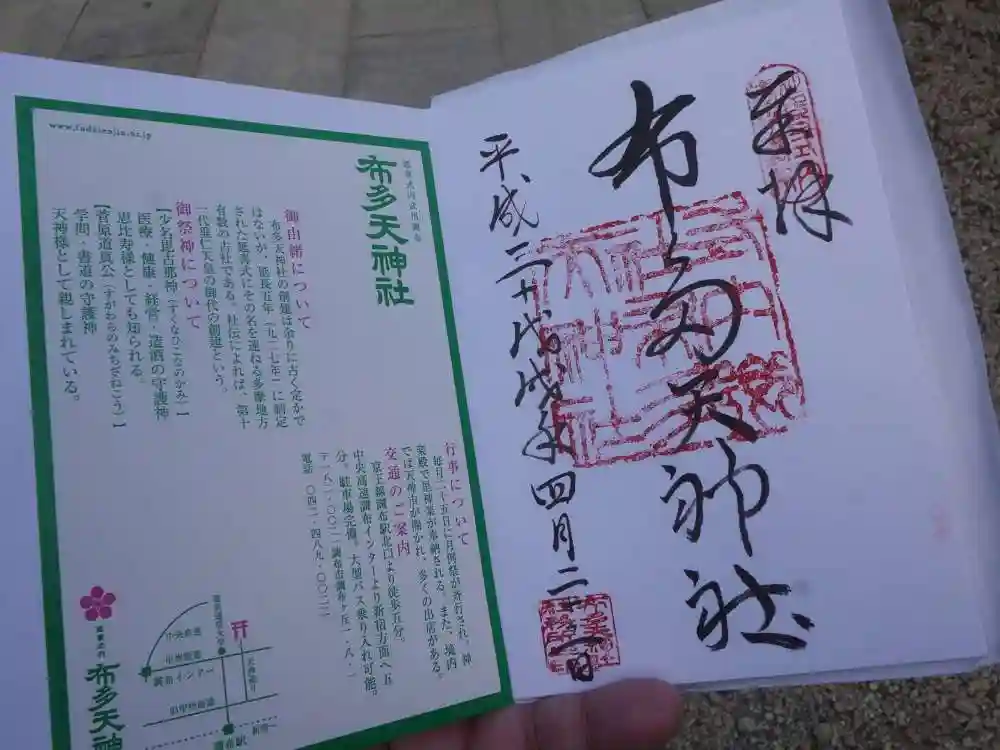 奉拝
布多天神社
平成三十戊戌年四月二十一日
www.fudatenjin.or.jp
延喜式内式内社
布多天神社
御由緒について
布多天神社の創建は余りに古く定かで
はないが、延長五年(九二七年)に制定
された延喜式にその名を連ねる多摩地方
有数の古社である。社伝によれば、第十
一代垂仁天皇の御代の創建という。
御祭神について
【少名毘古那神(すくなひこなのかみ)】
医療・健康・経営・造酒の守護神
恵比寿様としても知られる。
【菅原道真公(すがわらのみちざねこう)】
学問・書道の守護神
天神様として親しまれている。
行事について
毎月二十五日に月例祭が斉行され、神
楽殿で里神楽が奉納される。また、境内
では天神市が開かれ、多くの出店がある。
交通のご案内
京王線調布駅北口より徒歩五分。
中央高速調布インターより新宿方面へ五
分。駐車場完備。大型バス乗り入れ可能。
〒一八二-〇〇二二 調布市調布ヶ丘一-八-一
電話 〇四二-四八九-〇〇二二
電気通信大学
中央高速
甲州街道
調布インター
旧甲州街道
調布駅
新宿→
布多天神